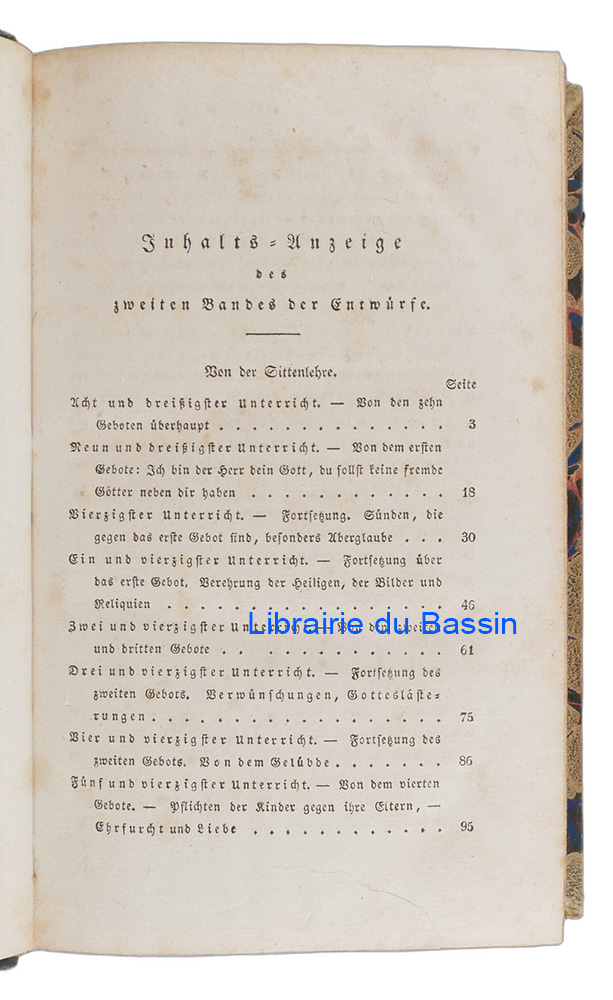 Inhalts-Anzeige
des
zweiten Bandes der Entwürfe.
Von der Sittenlehre.
Seite
Acht und dreißigster Unterricht. — Von den zehn
Geboten überhaupt . . . . . . . . . . . . . . 3
Neun und dreißigster Unterricht. — Von dem ersten
Gebote: Ich bin der Herr dein Gott, du sollst keine fremde
Götter neben dir haben . . . . . . . . . . . . 18
Vierzigster Unterricht. — Fortsetzung. Sünden, die
gegen das erste Gebot sind, besonders Aberglaube . . . 30
Ein und vierzigster Unterricht. — Fortsetzung über
das erste Gebot. Verehrung der Heiligen, der Bilder und
Reliquien . . . . . . . . . . . . . . . . . 46
Zwei und vierzigster Unterricht. — Von dem zweiten
und dritten Gebote . . . . . . . . . . . . . 61
Librairie du Bassin
Drei und vierzigster Unterricht. — Fortsetzung des
zweiten Gebots. Verwünschungen, Gottesläste-
rungen . . . . . . . . . . . . . . . . . . 75
Vier und vierzigster Unterricht. — Fortsetzung des
zweiten Gebots. Von dem Gelübde . . . . . . . 86
Fünf und vierzigster Unterricht. — Von dem vierten
Gebote. — Pflichten der Kinder gegen ihre Eltern, —
Ehrfurcht und Liebe . . . . . . . . . . . . 95